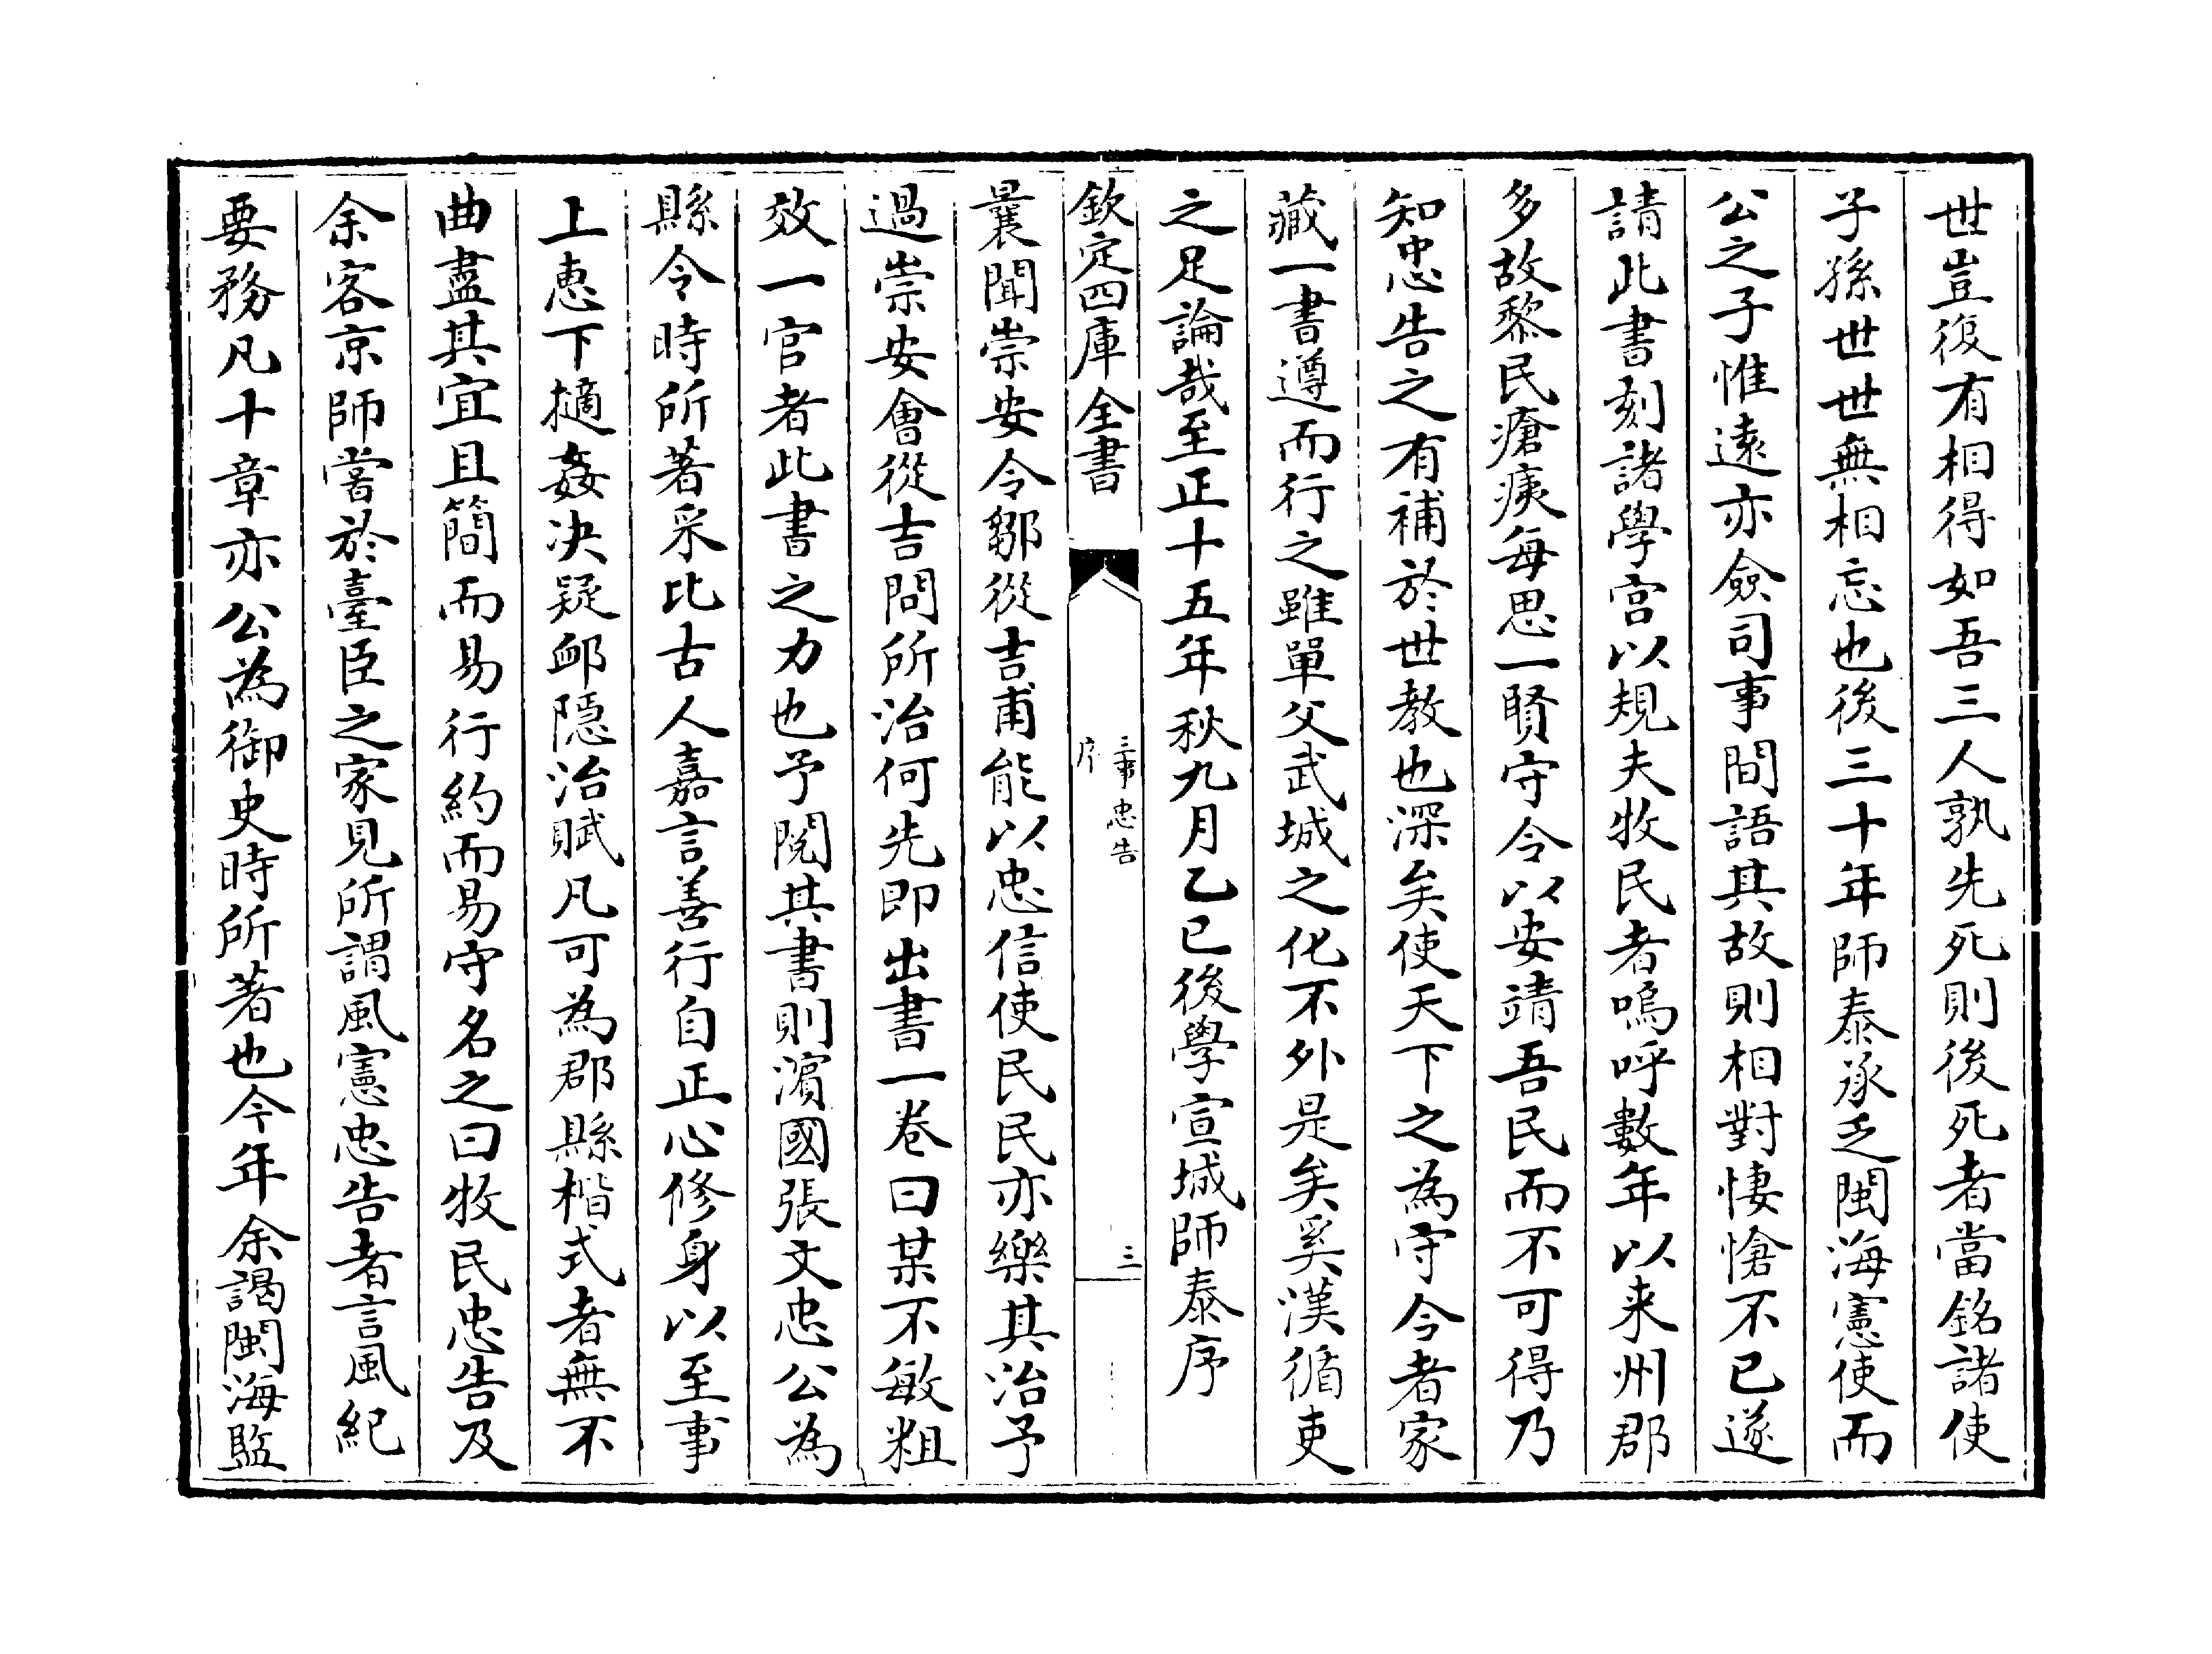 世豈復有相得如吾三人孰先死則後死者當銘諸使
子孫世世無相忘也後三十年師泰承乏閩海憲使而
公之子惟遠亦僉司事間語其故則相對悽愴不已遂
請此書刻諸學宫以規夫牧民者嗚呼數年以来州郡
多故黎民瘡痍每思一賢守令以安靖吾民而不可得乃
知忠告之有補於世教也深矣使天下之為守令者家
藏一書遵而行之雖單父武城之化不外是矣奚漢循吏
之足論哉至正十五年秋九月乙巳後學宣城師泰序
欽定四庫全書
三事忠告
序
三
曩聞崇安令鄒從吉甫能以忠信使民民亦樂其治予
過崇安會從吉問所治何先即出書一卷曰某不敏粗
效一官者此書之力也予閱其書則濵國張文忠公為
縣令時所著采比古人嘉言善行自正心修身以至事
上恵下擿姦决疑䘏隠治賦凡可為郡縣楷式者無不
曲盡其宜且簡而易行約而易守名之曰牧民忠告及
余客京師嘗於臺臣之家見所謂風憲忠告者言風紀
要務凡十章亦公為御史時所著也今年余謁閩海監